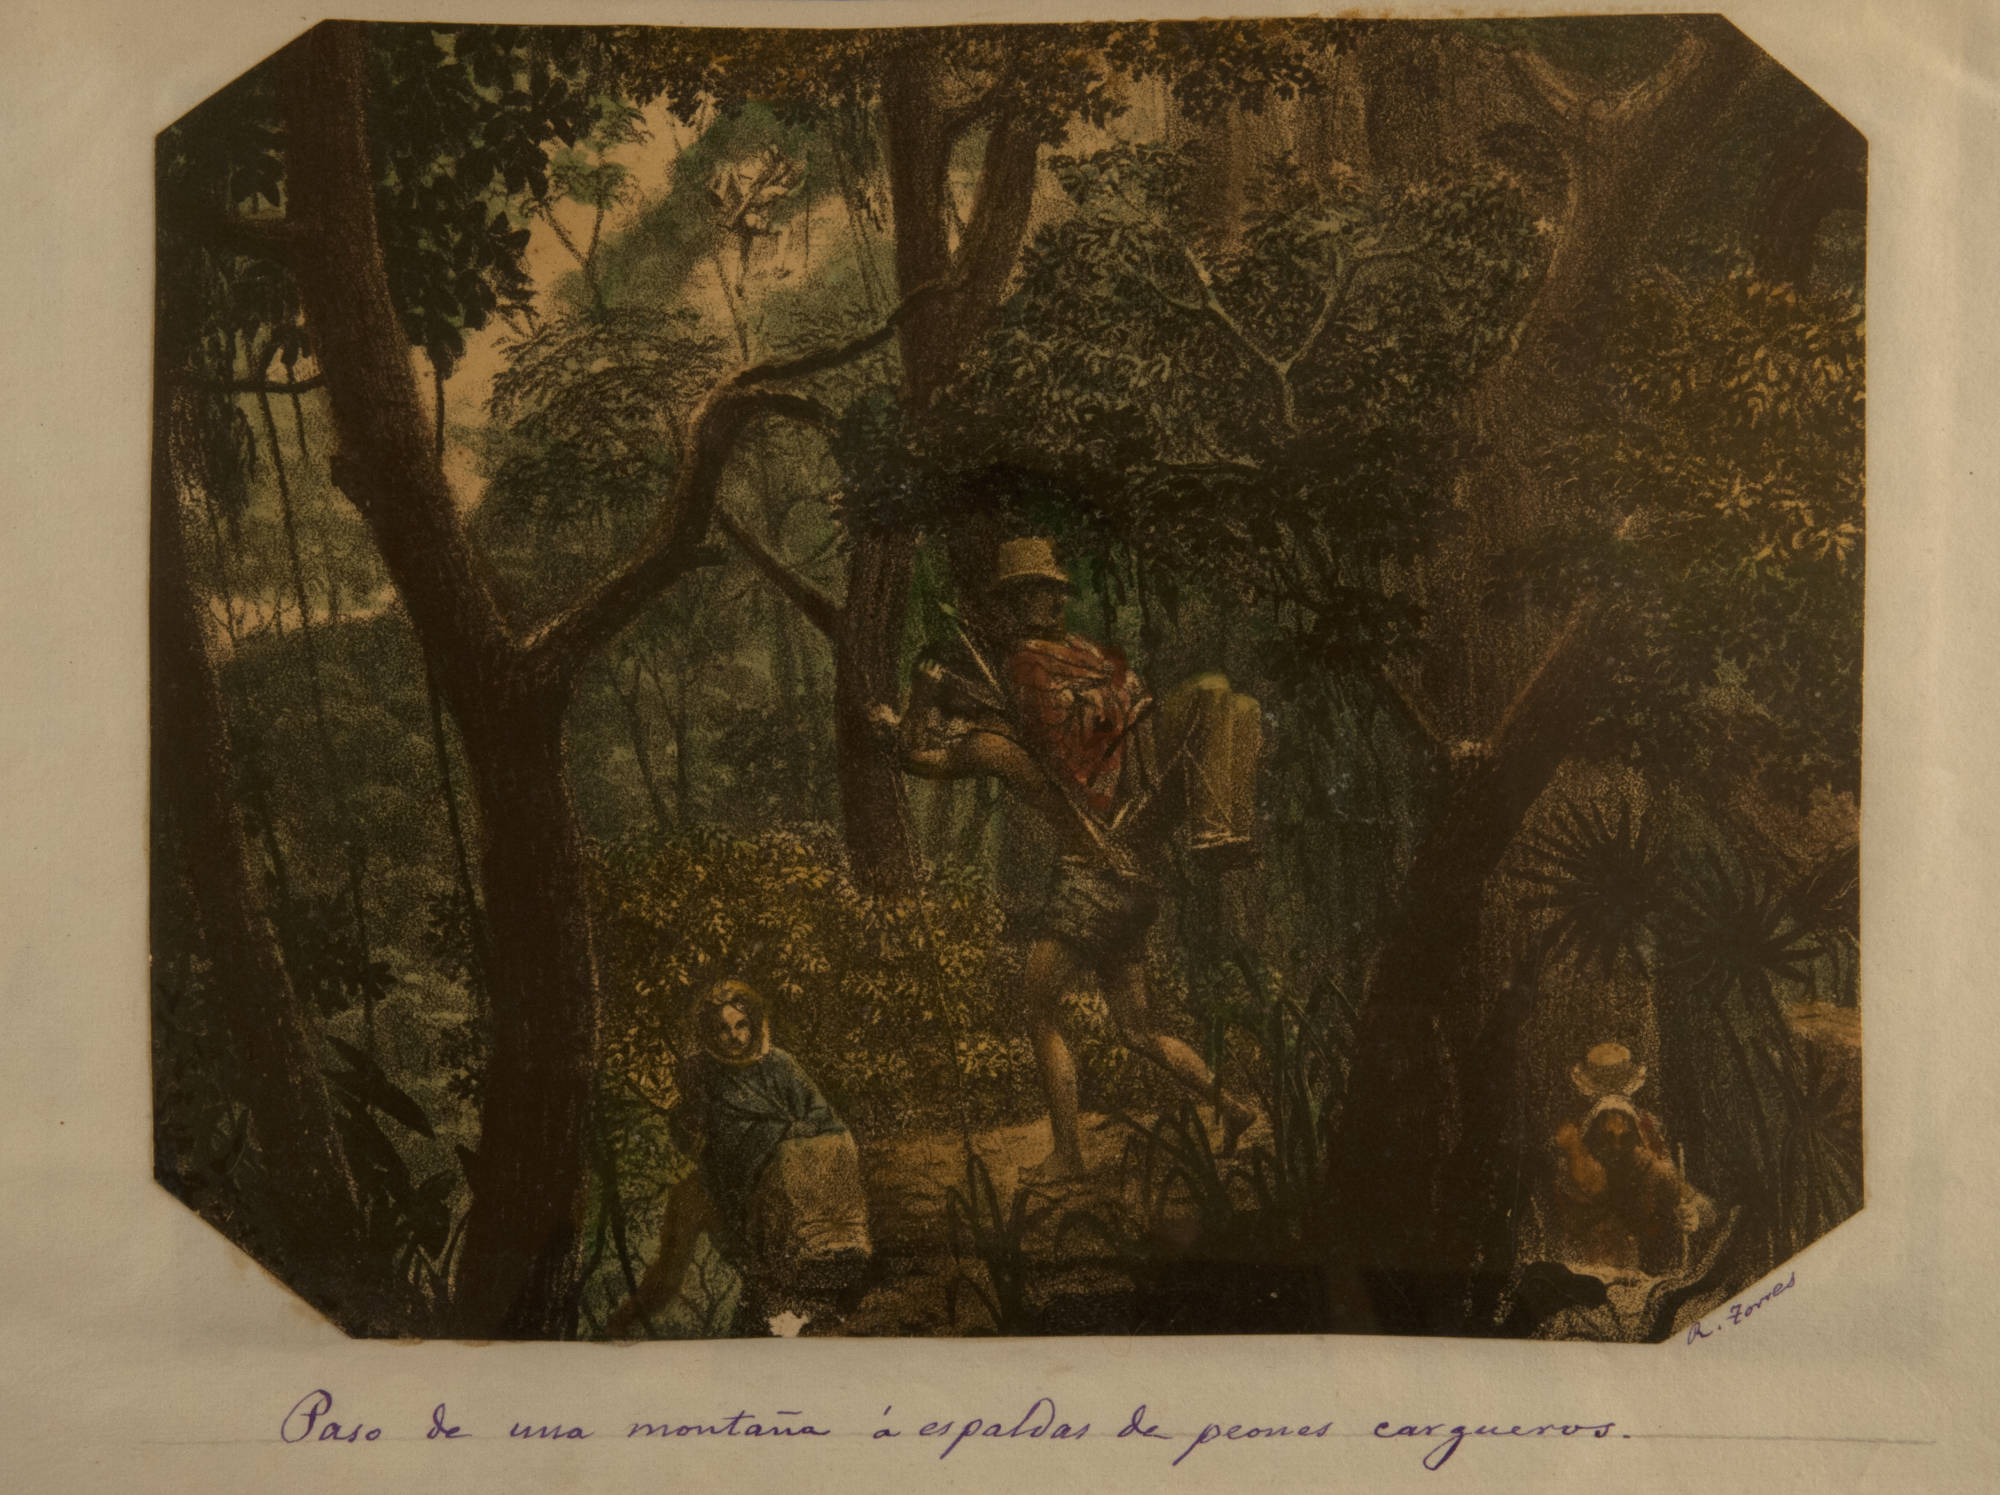 R. Torres
Paso de una montaña á espaldas de peones cargueros.